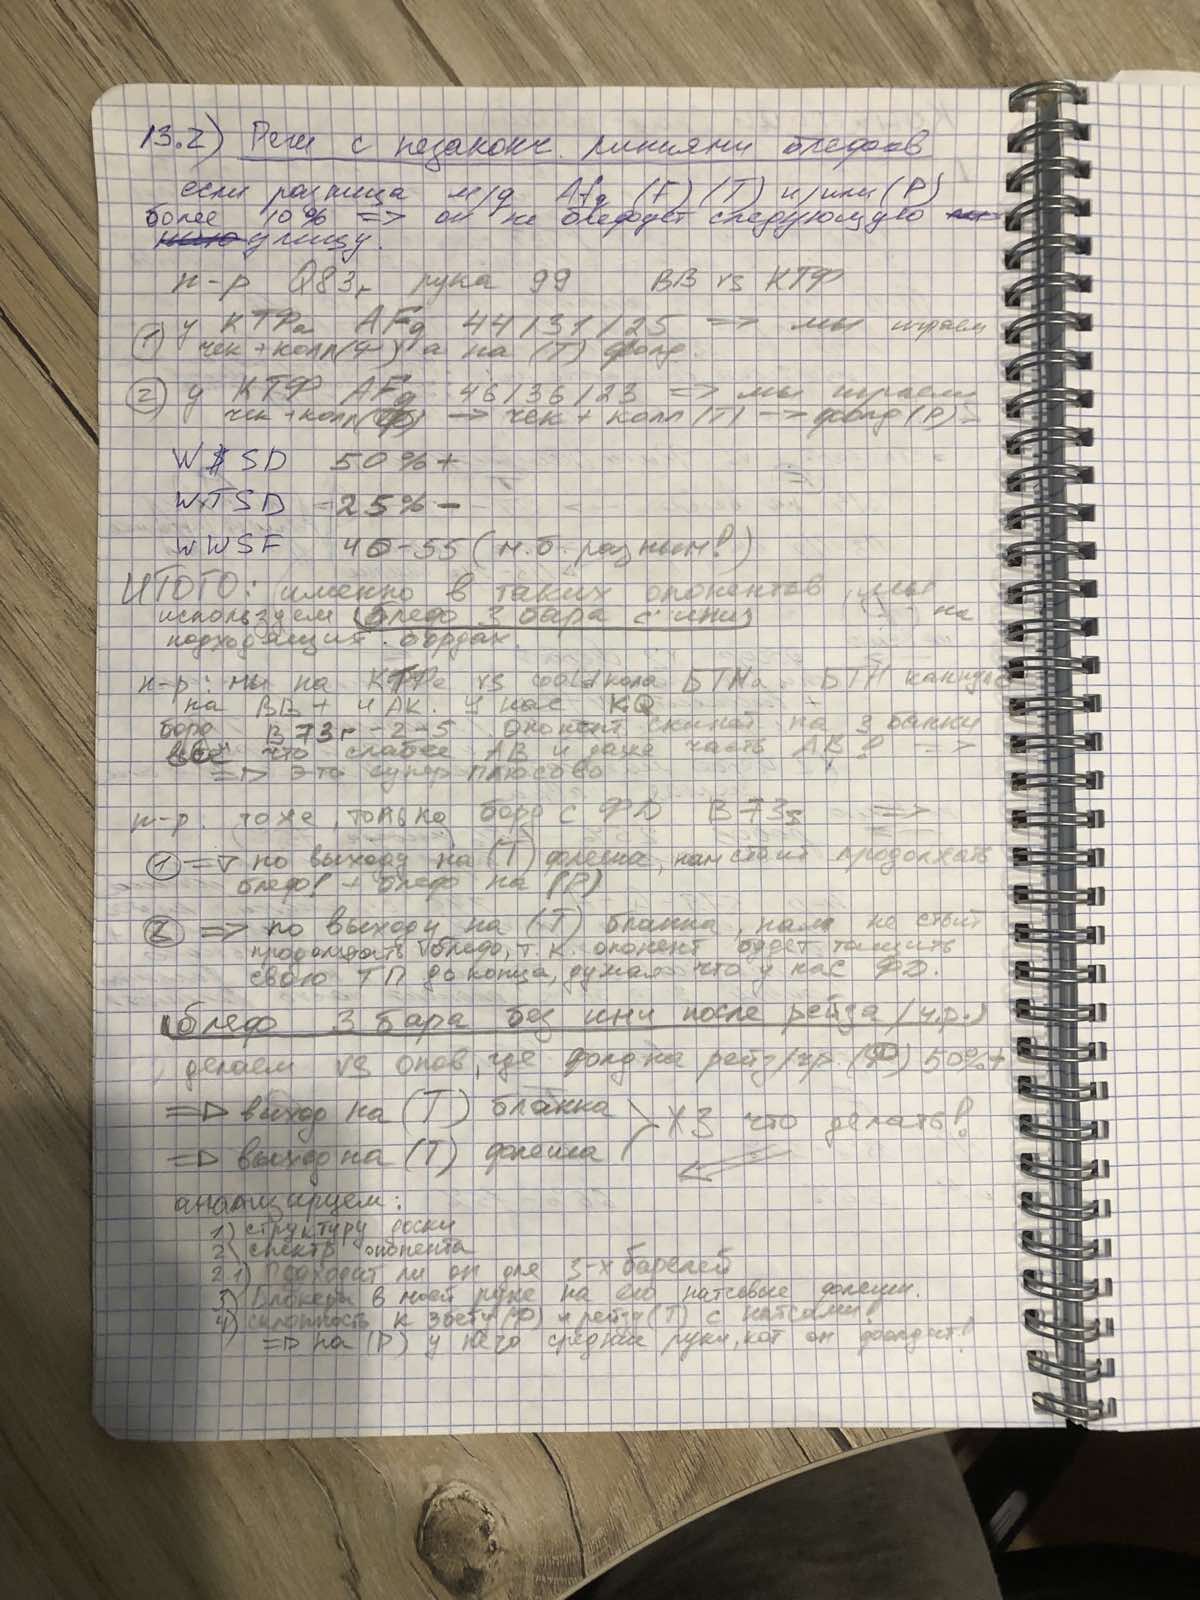 13.2) Реги с незаконч. линиями блефов
если разница м/д Afq (F) (T) и/или (P)
более 10% => он не блефует следующую
улицу.
н-р Q83r рука 99 BB vs КТФ
① у КТФа AFq 44/31/25 => мы играем
чек+колл(Ф) а на (Т) фолд.
② у КТФ AFq 46/36/23 => мы играем
чек+колл(Ф) -> чек + колл (Т) -> фолд (Р)
W$SD 50%+
WTSD 25%-
WWSF 40-55 (м.б. разным!)
ИТОГО: именно в таких опонентов, мы
используем блеф 3 бара с иниц на
подходящих бордах.
н-р: мы на КТФе vs cold кола БТНа. БТН
на BB+ и АК. У нас KQ
борд В73r-2-5 Опонент скинет на 3 банки
всё что слабее АВ и даже часть АВ! =>
=> это супер плюсово
н-р. тоже, только борд с ФД В73s =>
① => по выходу на (Т) флеша, нам стоит продолжать
блеф! + блеф на (Р)
② => по выходу на (Т) бланка, нам не стоит
продолжать блеф, т.к. опонент будет тащить
свою ТП до конца, думая что у нас ФД.
блеф 3 бара без ини после рейза/ч.р.)
делаем vs опов, где фолд на рейз/чр. (Ф) 50%+
=> выход на (Т) бланка
ХЗ что делать!
=> выход на (Т) флеша
анализируем:
1) структуру доски
2) спектр опонента
2.1) Подходит ли он для 3-х барелей
3) Блокеры в моей руке на его натсовые флеши.
4) склонность к 3бету (Ф) и рейзу (Т) с натсами!
=> на (Р) у него средние руки, кот он фолдит!